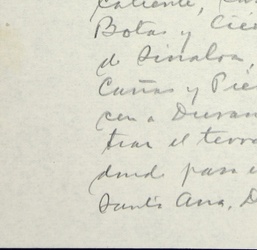 Caliente,
Botas y Cie
de Sinaloa,
Cañas y Pie
cen a Duran
trar el terr
dond pasa
Santa Ana, D